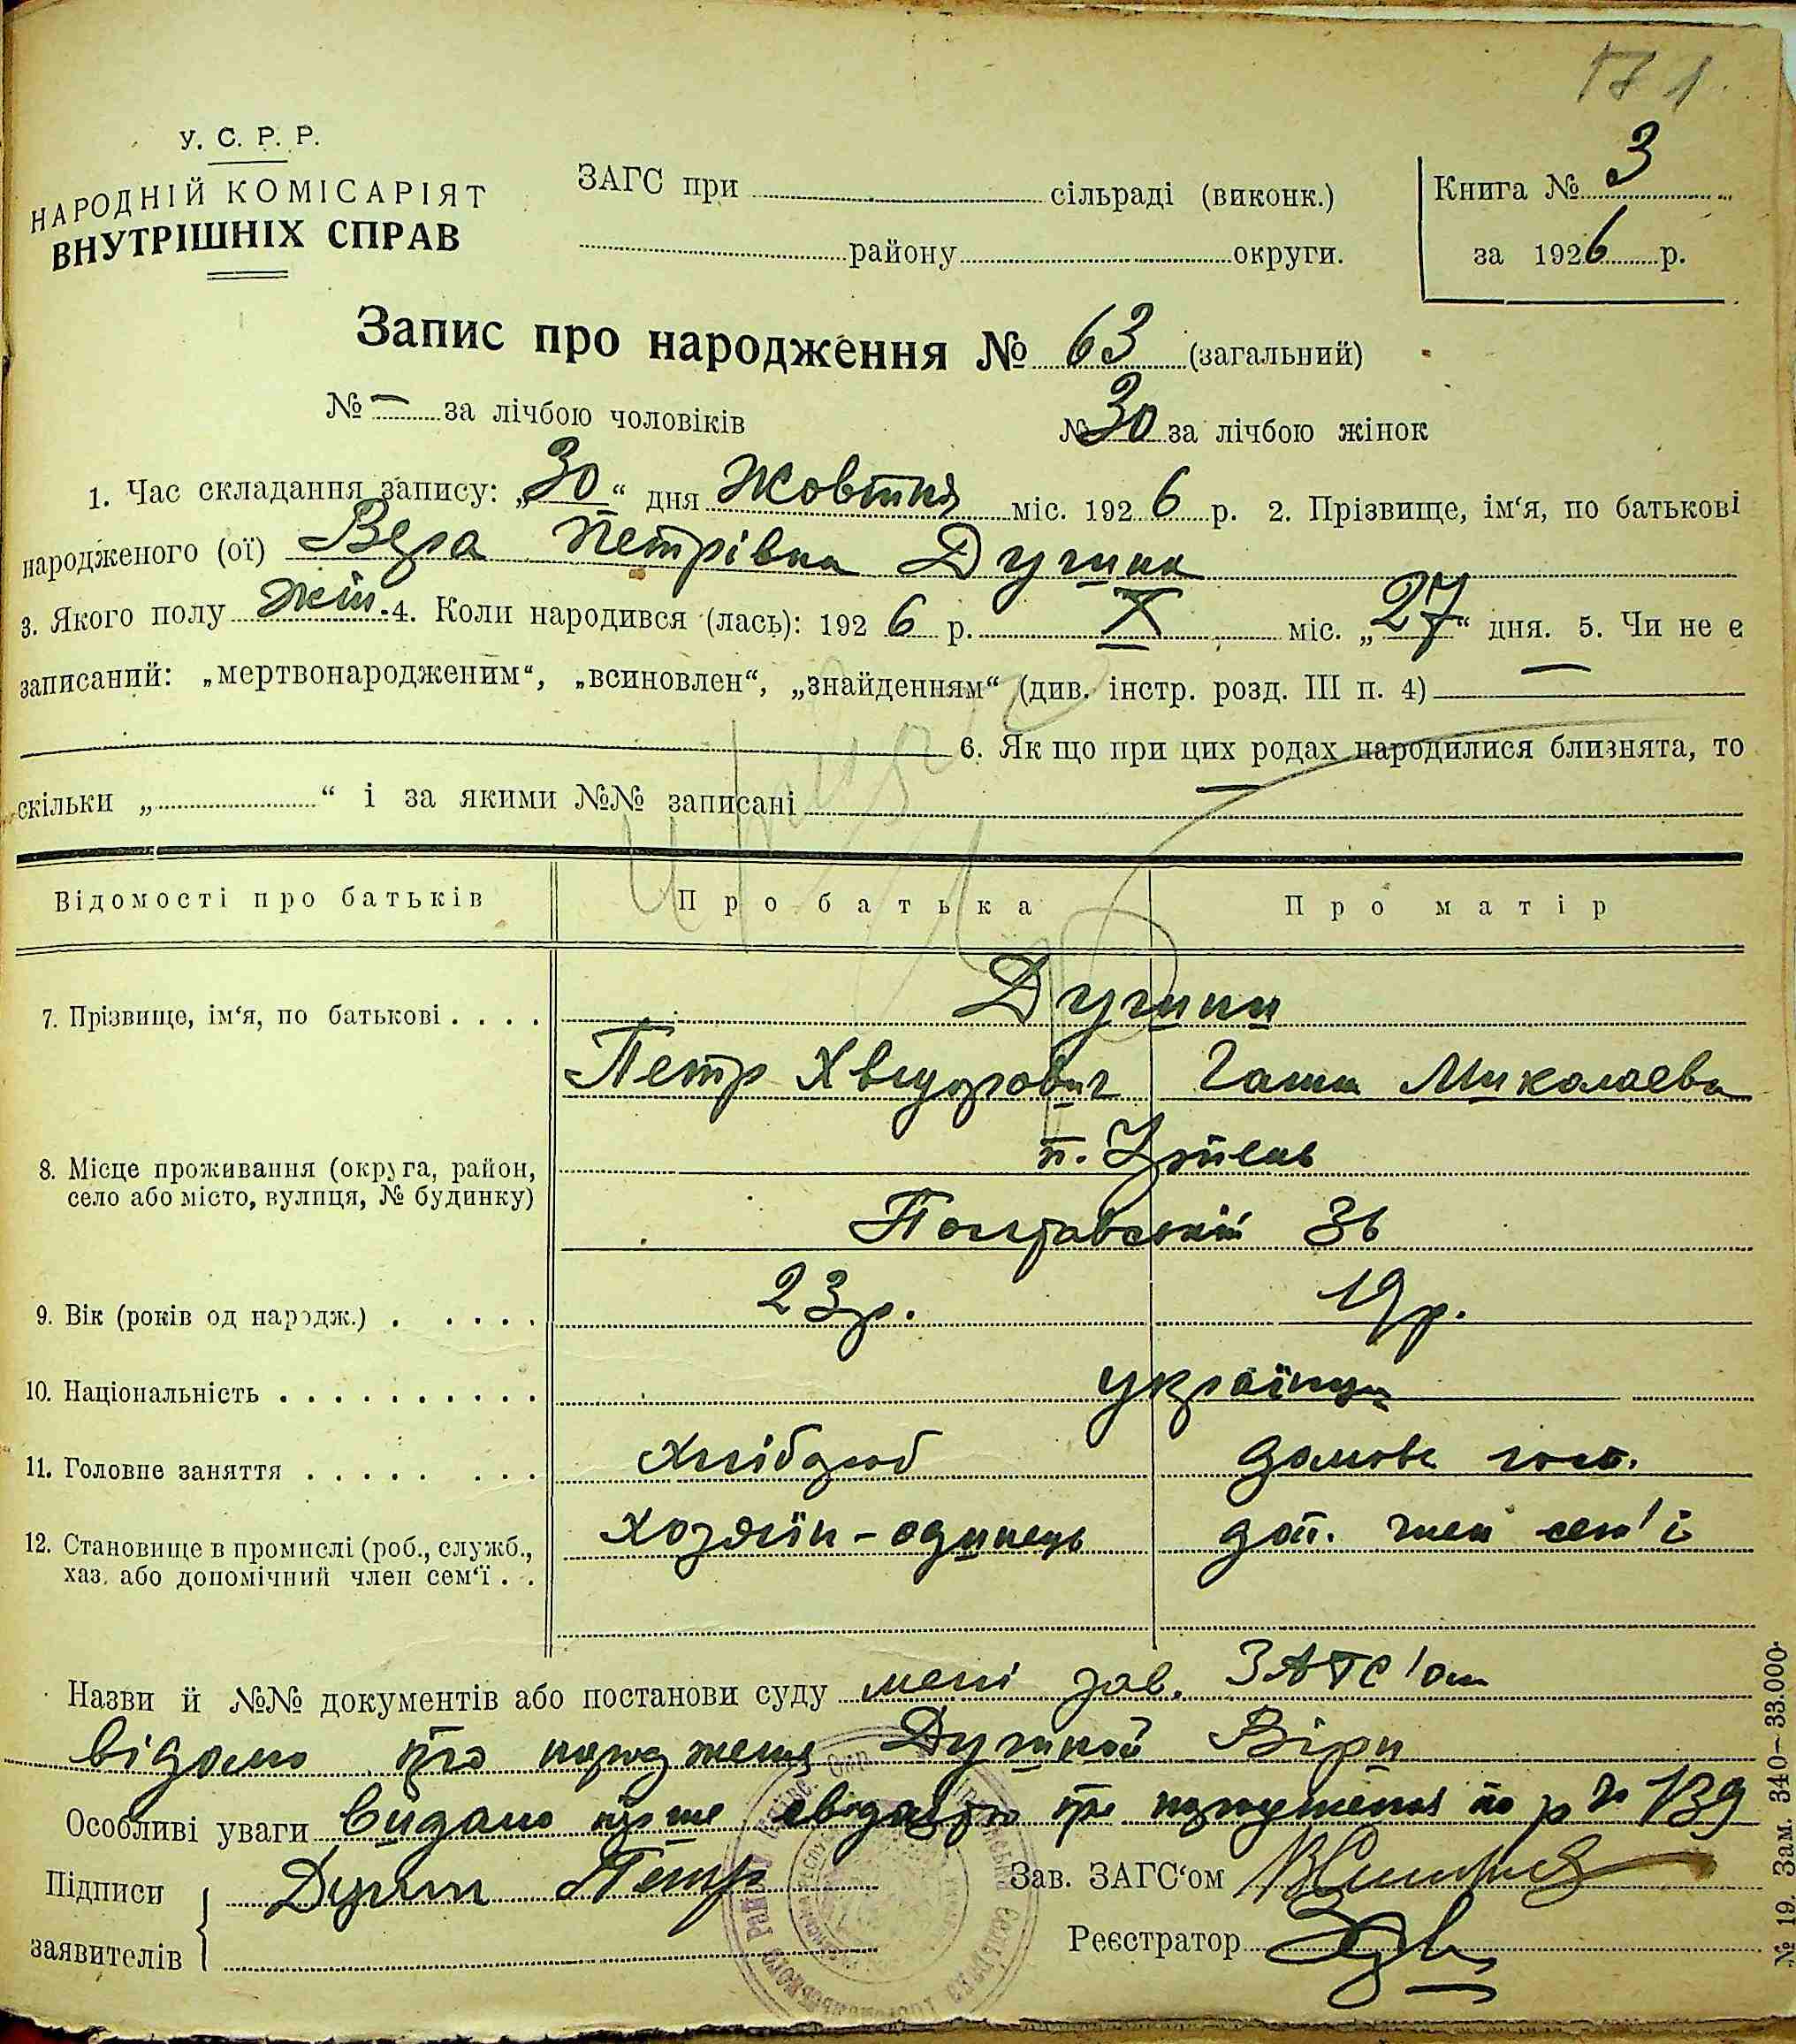 171
У. С. Р. Р.
НАРОДНІЙ КОМІСАРІЯТ
ВНУТРІШНІХ СПРАВ
ЗАГС при сільраді (виконк.)
району округи.
Книга № 3
за 1926 р.
Запис про народження № 63 (загальний)
№ — за лічбою чоловіків № 30 за лічбою жінок
1. Час складання запису: „30“ дня Жовтня міс. 1926 р. 2. Прізвище, ім‘я, по батькові
народженого (ої) Вера Петрівна Дугина
3. Якого полу жін. 4. Коли народився (лась): 1926 р. X міс. „27“ дня. 5. Чи не є
записаний: „мертвонародженим“, „всиновлен“, „знайденням“ (див. інстр. розд. III п. 4) —
6. Як що при цих родах народилися близнята, то
скільки „ “ і за якими №№ записані —
Відомості про батьків Про батька Про матір
7. Прізвище, ім‘я, по батькові . . . . Дугини
Петр Хведорович Галина Миколаєва
8. Місце проживання (округа, район, п. Ірпень
село або місто, вулиця, № будинку) Полтавській 36
9. Вік (років од народж.) . . . . . 23 р. 19 р.
10. Національність . . . . . . . . . . українци
11. Головне заняття . . . . . . . . Хлібороб домове госп.
12. Становище в промислі (роб., служб., Хозяїн - одинець доп. член сем'ї
хаз. або допомічний член сем‘ї . .
Назви й №№ документів або постанови суду мені зав. ЗАГС'ом
відомо про народження Дугиной Віри
Особливі уваги Видано перше свидоцтво про народження по р № 139
Підписи Дугин Петр Зав. ЗАГС‘ом
заявителів Реєстратор
№ 19. Зам. 340—33.000.